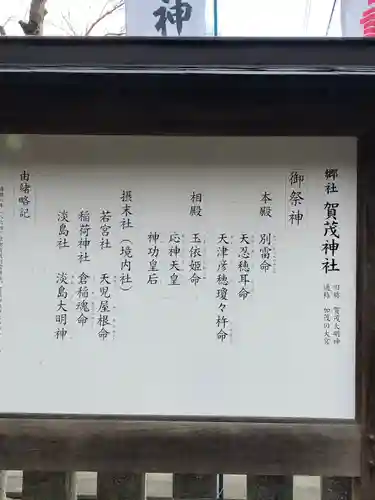 神
郷社 賀茂神社
旧称 賀茂大明神
通称 加茂の大宮
御祭神
本殿 別雷命
天忍穂耳命
天津彦穂瓊々杵命
相殿 玉依姫命
応神天皇
神功皇后
摂末社(境内社)
若宮社 天児屋根命
稲荷神社 倉稲魂命
淡島社 淡島大明神
由緒略記